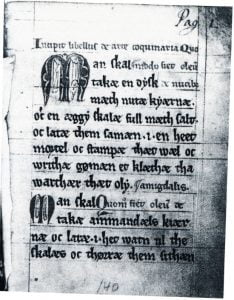 Pag. 1.
Incipit libellus de arte coquinaria Quo
Man skal modo fiet oleū
takæ en dysk de nucibꝰ
mæth nutæ kyærnæ.
oc en æggy skalæ full mæth salt
oc latæ them samæn . i . en heet
mortel oc stampæ thæt wæl oc
writhæ gømæn et klæthæ tha
warthær thæt oly. amigdalis.
Man skal Quoṁ fiet oleū de
takæ ammandæls kiær
næ oc latæ . i . het watn til the
skalæs oc thørræ them sithan
140